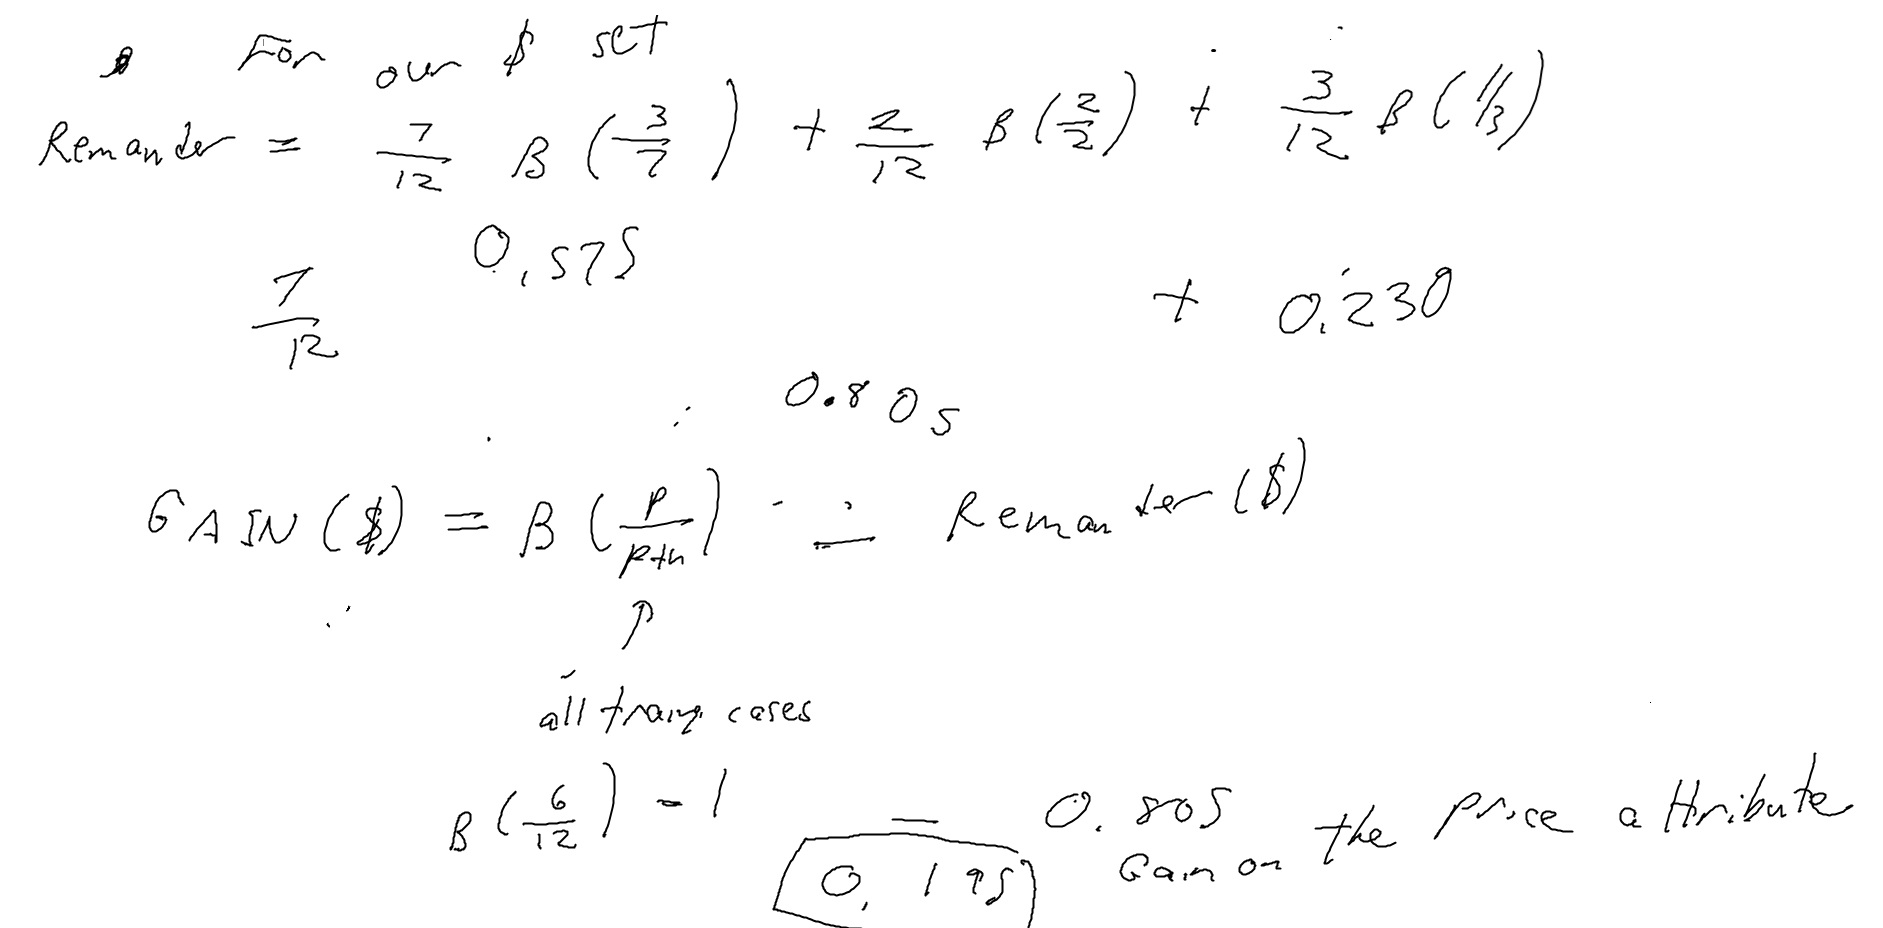 For our $ set
Remander = 7/12 B(3/7) + 2/12 B(2/2) + 3/12 B(1/3)
7/12 0.575 + 0.230
0.805
GAIN($) = B(p/p+n) - Remander($)
↑
all traing cases
B(6/12) - 1 - 0.805
0.195 Gain on the price attribute